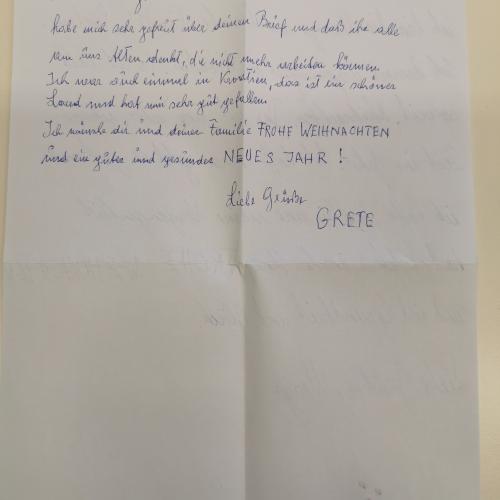 habe mich sehr gefreut über deinen Brief und daß ihr alle
an uns Alten denkt, die nicht mehr arbeiten können.
Ich war auch einmal in Kroatien, das ist ein schönes
Land und hat mir sehr gut gefallen.
Ich wünsche dir und deiner Familie FROHE WEIHNACHTEN
und ein gutes und gesundes NEUES JAHR !
Liebe Grüße
GRETE